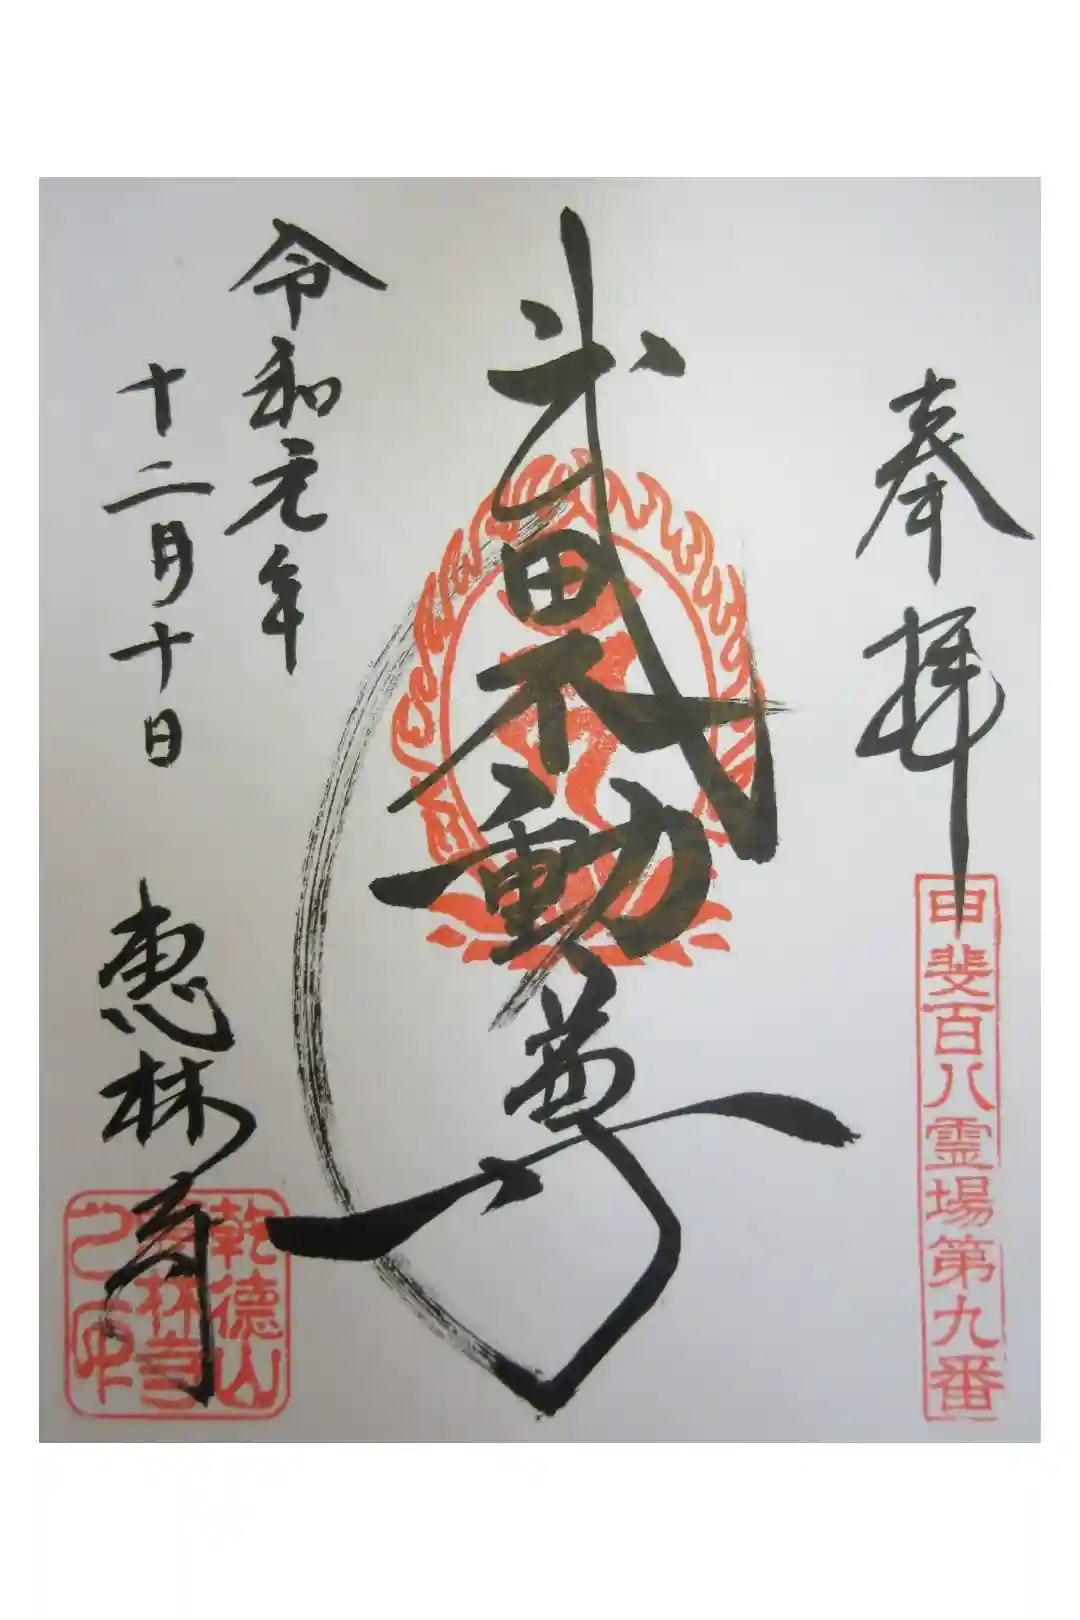 奉拝
甲斐百八霊場第九番
武田不動尊
令和元年
十二月十日
恵林寺
乾徳山
恵林寺
之印